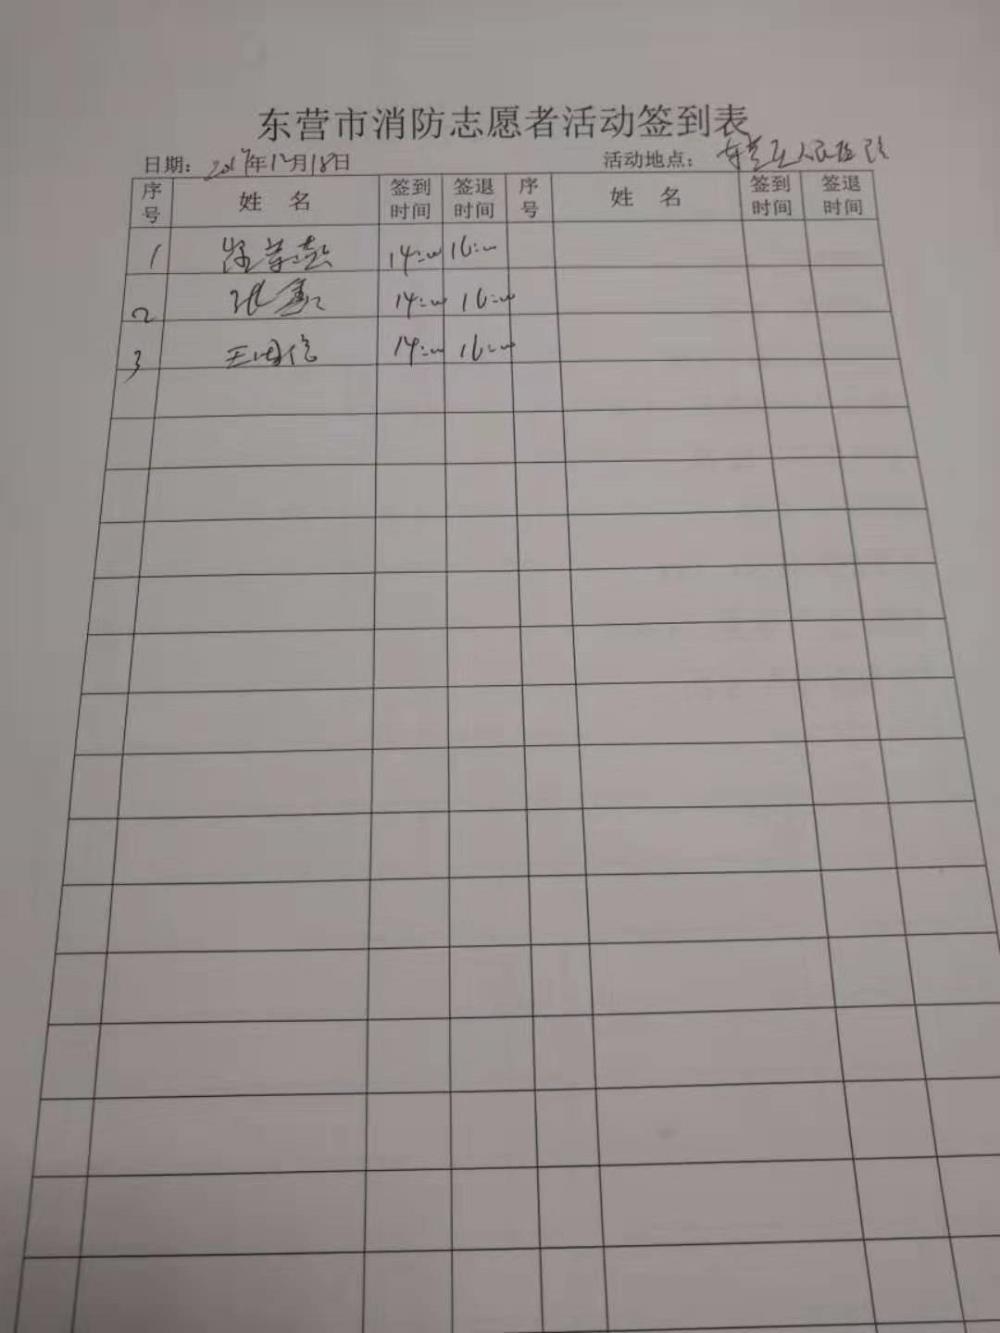 东营市消防志愿者活动签到表
日期: 2017年12月18日 活动地点: 东营区人民医院
序号 姓 名 签到时间 签退时间 序号 姓 名 签到时间 签退时间
1 14:00 16:00
2 张 14:00 16:00
3 王国信 14:00 16:00